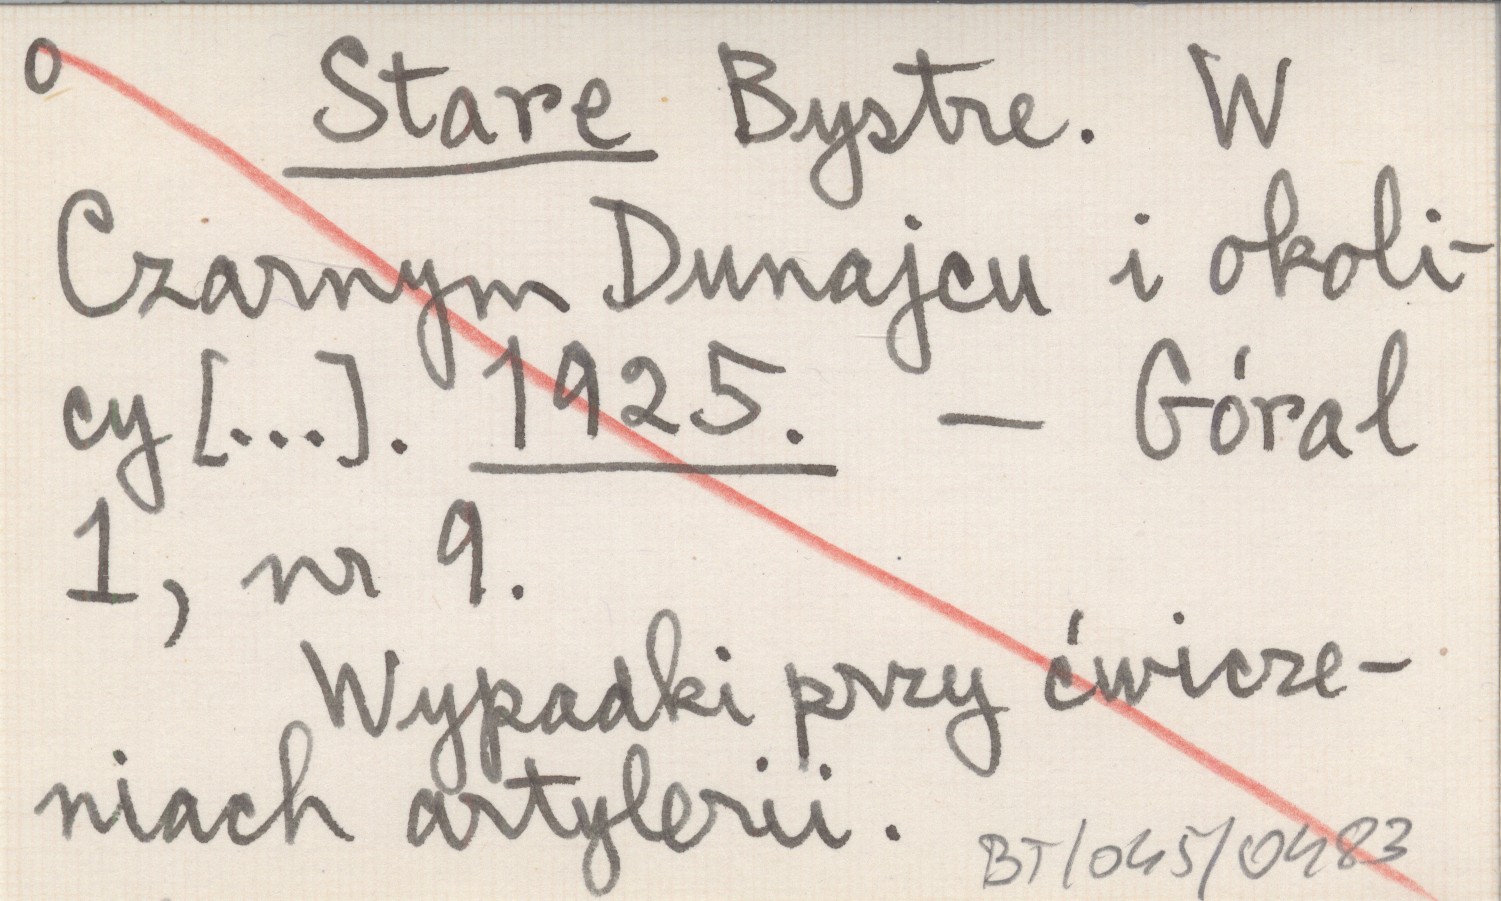 o Stare Bystre. W
Czarnym Dunajcu i okoli-
cy [...]. 1925. — Góral
1, nr 9.
Wypadki przy ćwicze-
niach artylerii.
BT/045/0483